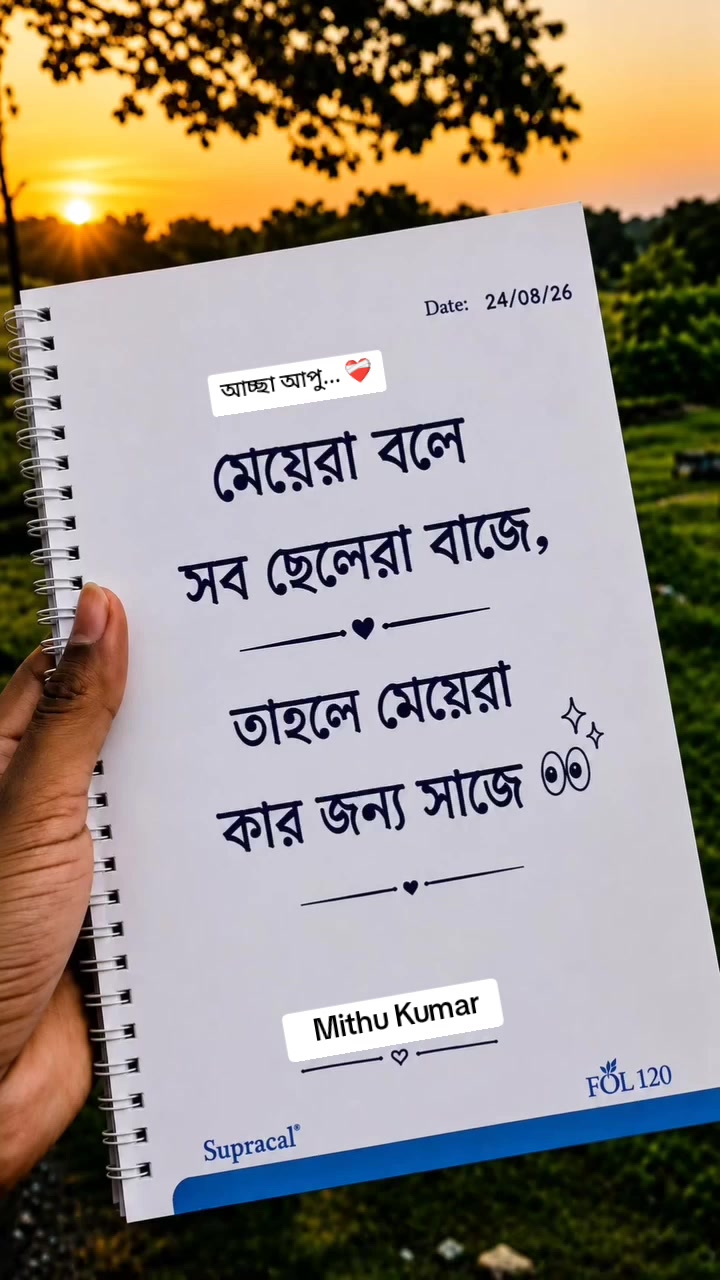 Date: 24/08/26
আচ্ছা আপু... ❤️‍🩹
মেয়েরা বলে
সব ছেলেরা বাজে,
তাহলে মেয়েরা
কার জন্য সাজে 👀
Mithu Kumar
FOL 120
Supracal®